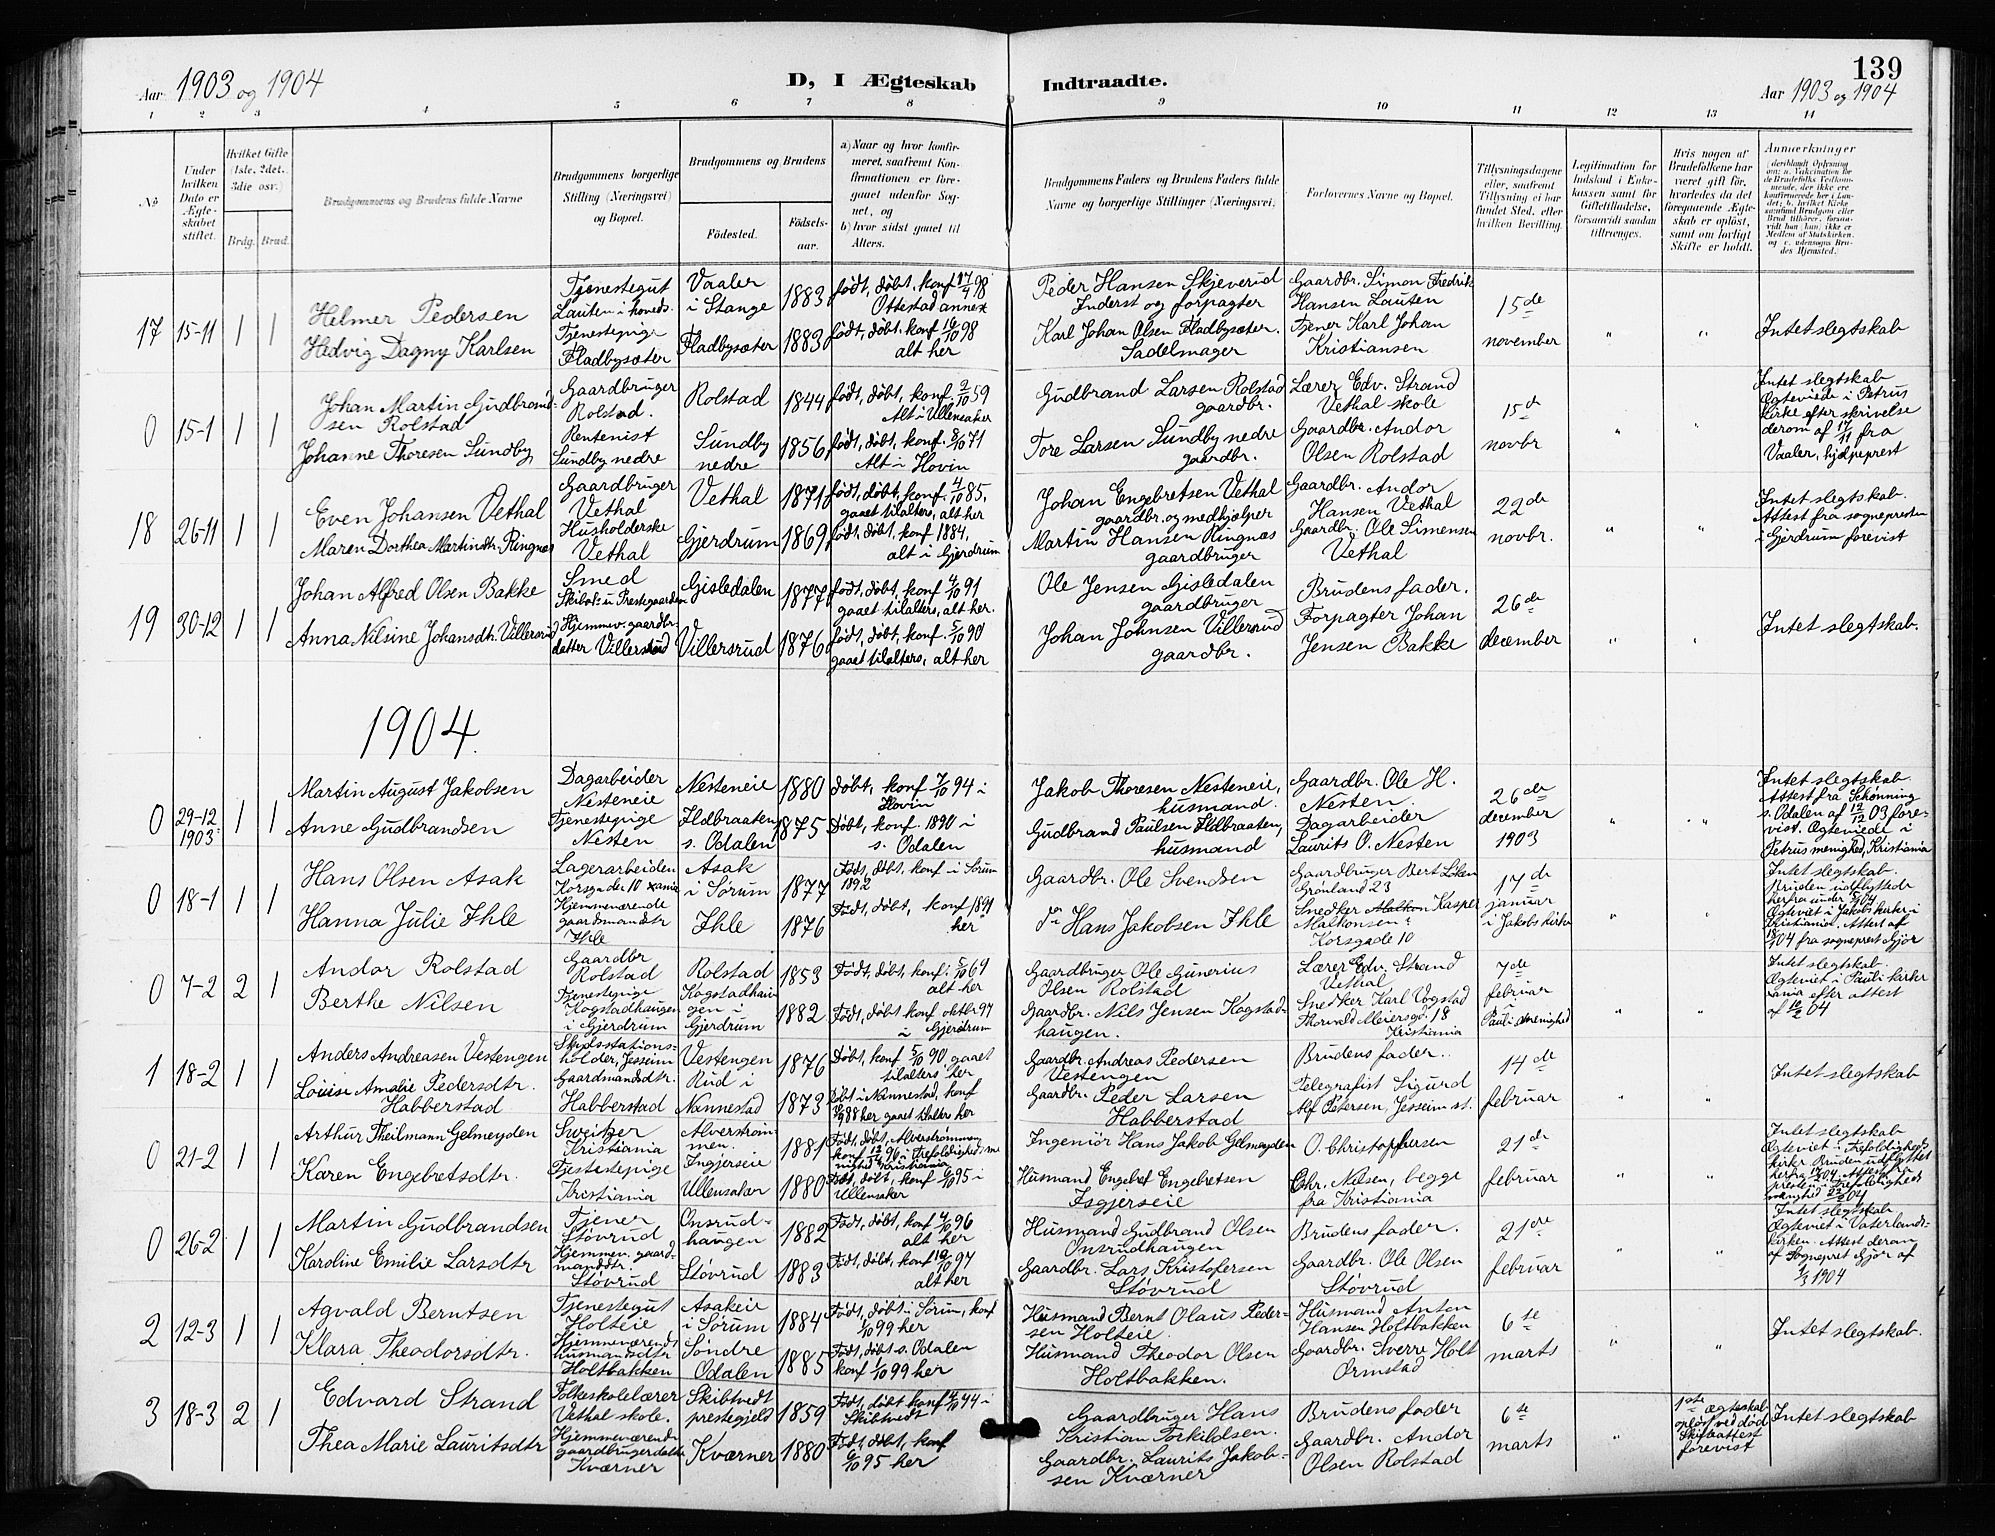 Aar 1903 og 1904
D, I Ægteskab
Indtraadte.
139
Aar 1903 og 1904
1 2 3 4 5 6 7 8 9 10 11 12 13 14
No
Under hvilken Dato er Ægteskabet stiftet.
Hvilket Gifte (1ste, 2det, 3die osv.)
Brdg. Brud.
Brudgommens og Brudens fulde Navne
Brudgommens borgerlige Stilling (Næringsvei) og Bopæl.
Brudgommens og Brudens
Fødested.
Fødselsaar.
a) Naar og hvor konfirmeret, saafremt Konfirmationen er foregaaet udenfor Sognet, og
b) hvor sidst gaaet til Alters.
Brudgommens Faders og Brudens Faders fulde Navne og borgerlige Stillinger (Næringsvei)
Forlovernes Navne og Bopæl.
Tillysningsdagene eller, saafremt Tillysning ei har fundet Sted, efter hvilken Bevilling.
Legitimation for Indskud i Enkekassen samt for Giftetilladelse, forsaavidt saadan tiltrænges.
Hvis nogen af Brudefolkene har været gift før, hvorledes da det foregaaende Ægteskab er opløst, samt om lovligt Skifte er holdt.
Anmærkninger
17 15-11 1 1
Helmer Pedersen
Hedvig Dagny Karlsen
Tjenestegut
Lauten i hoveds.
Tjenestepige
Fladbysæter
Vaaler
i Stange
Fladbysæter
1883
1883
født, døbt, konf 17/4 98
Ottestad annex
født, døbt, konf 16/10 98
alt her
Peder Hansen Skjeverud
Inderst og forpagter
Karl Johan Olsen Fladbysæter.
Sadelmager
Gaardbr. Simon Fredrik
Hansen Lauten
Tjener Karl Johan
Kristiansen
15de
november
Intet slegtskab
0 15-1 1 1
Johan Martin Gudbrand-
sen Rolstad
Johanne Thoresen Sundby
Gaardbruger
Rolstad.
Rentenist
Sundby nedre
Rolstad
Sundby
nedre
1844
1856
født, døbt, konf. 2/10 59
Alt i Ullensaker
født, døbt, konf. 8/10 71
Alt i Hovin
Gudbrand Larsen Rolstad
gaardbr.
Tore Larsen Sundby nedre
gaardbr.
Lærer Edv. Strand
Vethal skole
Gaardbr. Andor
Olsen Rolstad
15d
novbr
Intet slegtskab
Ægteviede i Petrus
Kirke efter skrivelse
derom af 17/11 fra
Vaaler, hjelpeprest
18 26-11 1 1
Even Johansen Vethal
Maren Dorthea Martindtr. Ringnæs
Gaardbruger
Vethal
Husholderske
Vethal
Vethal
Gjerdrum
1871
1869
født, døbt, konf. 4/10 85,
gaaet tilalters, alt her
født, døbt, konf 1884,
alt i Gjerdrum
Johan Engebretsen Vethal
gaardbr. og medhjælper
Martin Hansen Ringnæs
gaardbruger
Gaardbr. Andor
Hansen Vethal
Gaardbr. Ole Simensen
Vethal
22de
novbr.
Intet slegtskab.
Attest fra sognepresten
i Gjerdrum forevist
19 30-12 1 1
Johan Alfred Olsen Bakke
Anna Nilsine Johansdtr. Villersrud
Smed
Hjemmev. gaardbr.
datter Villersrud
Gisledalen
Villersrud
1877
1876
født, døbt, konf 4/10 91
gaaet tilalters, alt her.
født, døbt, konf. 5/10 90
gaaet tilalters, alt her
Ole Jensen Gisledalen
gaardbruger
Johan Johnsen Villersrud
gaardbr.
Brudens fader.
Forpagter Johan
Jensen Bakke
26de
december
Intet slegtskab.
1904.
0 29-12 1903 1 1
Martin August Jakobsen
Anne Gudbrandsen
Dagarbeider
Nesteneie
Tjenestepige
Nesten
Nesteneie
Ildbraaten
s. Odalen
1880
1875
døbt, konf 7/10 94 i
Hovin
Døbt, konf. 1890 i
s. Odalen
Jakob Thoresen Nesteneie,
husmand.
Gudbrand Paulsen Ildbraaten,
husmand
Gaardbr. Ole H.
Nesten.
Dagarbeider
Laurits O. Nesten
26de
december
1903
Intet slegtskab.
Attest fra Schønning
s. Odalen af 12/12 03 fore-
vist. Ægteviede i
Petrus menighed, Kristiania
0 18-1 1 1
Hans Olsen Asak
Hanna Julie Ihle
Lagerarbeider
Korsgaden 10 Xania
Hjemmeværende
gaardmandsdtr
Ihle
Asak
i Sørum
Ihle
1877
1876
Føds, døbt, konf i Sørum
1892
Født, døbt, konf 1891
her
Gaardbr. Ole Svendsen
do Hans Jakobsen Ihle
Gaardbruger Bert Løken
Grønland 23
Snedker Kasper
Malkonsen
Korsgade 10
17de
januar
i Jakobs kirke
Intet slegtskab.
Bruden udflyttede
herfra under
Ægteviet i Jakobs kirke i
Kristiania. Attest af
18/1 04 fra sogneprest Gjør
0 7-2 2 1
Andor Rolstad
Berthe Nilsen
Gaardbr
Rolstad
Tjenestepige
Kogstadhaugen
i Gjerdrum
Rolstad
Kogstadhau
gen i
Gjerdrum
1853
1882
Født, døbt, konf. 5/10 69
alt her
Født, døbt konf oktbr 97
i Gjerdrum
Gaardbruger Ole Gunerius
Olsen Rolstad
Gaardbr. Nils Jensen Kogstad-
haugen.
Lærer Edv. Strand
Vethal
Snedker Karl Vogstad
Thorvald Meiersgd. 18
Kristiania
7de
februar
Pauli menighed
Intet slegtskab.
Ægteviet i Pauli kirke
xania efter attest
af 10/2 04
1 18-2 1 1
Anders Andreasen Vestengen
Louise Amalie Pedersdtr.
Habberstad
Skydsstations-
holder, Jesseim
Gaardmandsdtr.
Habberstad
Vestengen
Rud i
Nannestad
1876
1873
Døbt, konf 5/10 90 gaaet
tilalters her
Døbt i Nannestad, konf
88 her gaaet tilalters her
Gaardbr. Andreas Pedersen
Vestengen
Gaardbr. Peder Larsen
Habberstad
Brudens fader.
Telegrafist Sigurd
Alf Petersen, Jesseim st.
14de
februar
Intet slegtskab
0 21-2 1 1
Arthur Theilmann Gelmeyden
Karen Engebretsdtr.
Sweitzer
Kristiania
Tjestestepige
Kristiania
Alverstrøm-
men.
Ingjerseie
Ullensaker
1881
1880
Født, døbt, Alverstrømmen
konf 96 i Trefoldigheds me
nighed Kristiania
Født, døbt, konf 95 i
Ullensaker
Ingeniør Hans Jakob Gelmeyden
Husmand Engebret Engebretsen
O. Christophersen
Chr. Nilsen, begge
fra Kristiania
21de
februar
Intet slegtskab
Ægteviet i Trefoldigheds
kirke. Bruden udflyttet
0 26-2 1 1
Martin Gudbrandsen
Karoline Emilie Larsdtr
Tjener
Støvrud
Hjemmev. gaard-
manddtr.
Støvrud
Onsrud-
haugen
Støvrud
1882
1883
Født, døbt, konf 4/10 96
alt her
Født, døbt, konf 10/10 97
alt her
Husmand Gudbrand Olsen
Onsrudhaugen
Gaardbr. Lars Kristofersen
Støvrud
Brudens fader.
Gaardbr. Ole Olsen
Støvrud
21de
februar
Intet slegtskab
Ægteviet i Vaterlands-
kirken. Attest deran
af Sognepret Gjør af
1904
2 12-3 1 1
Agvald Berntsen
Klara Theodorsdtr.
Tjenestegut
Holteie
Hjemmeværende
husmandsdtr
Holtbakken
Asakeie
i Sørum
Søndre
Odalen
1884
1885
Født, døbt i Sørum, konf
1/10 99 her
Født, døbt s. Odalen
konf 1/10 99 her
Husmand Bernt Olaus Peder-
sen Holteie.
Husmand Theodor Olsen
Holtbakken.
Husmand Anton
Hansen Holtbakken
Gaardbr. Sverre Holt
Ormstad
6te
marts
Intet slegtskab.
3 18-3 2 1
Edvard Strand
Thea Marie Lauritsdtr
Folkeskolelærer
Vethal skole.
Hjemmeværende
gaardbrugerdatter
Kværner
Skibtvedt
prestegjeld
Kværner
1859
1880
Født, døbt konf 4/10 44 i
Skibtvedt
Født, døbt, konf
95 her
Gaardbruger Hans
Kristian Torkildsen.
Gaardbr. Laurits Jakob-
sen Kværner
Brudens fader
Gaardbr. Andor
Olsen Rolstad
6te
marts
1ste ægteskab
opløst ved død
Skifteattest
forevist
Intet slegtskab